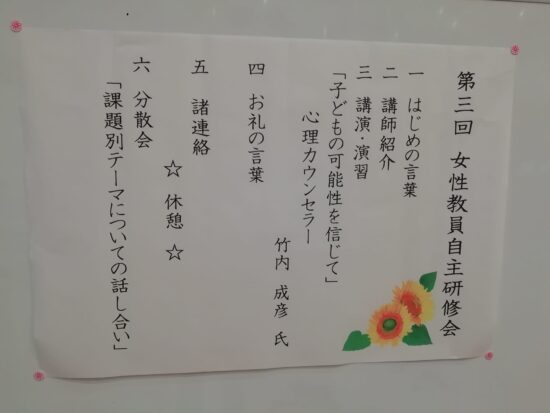 第三回　女性教員自主研修会
一　はじめの言葉
二　講師紹介
三　講演・演習
「子どもの可能性を信じて」
心理カウンセラー
竹内　成彦　氏
四　お礼の言葉
五　諸連絡
☆　休憩　☆
六　分散会
「課題別テーマについての話し合い」